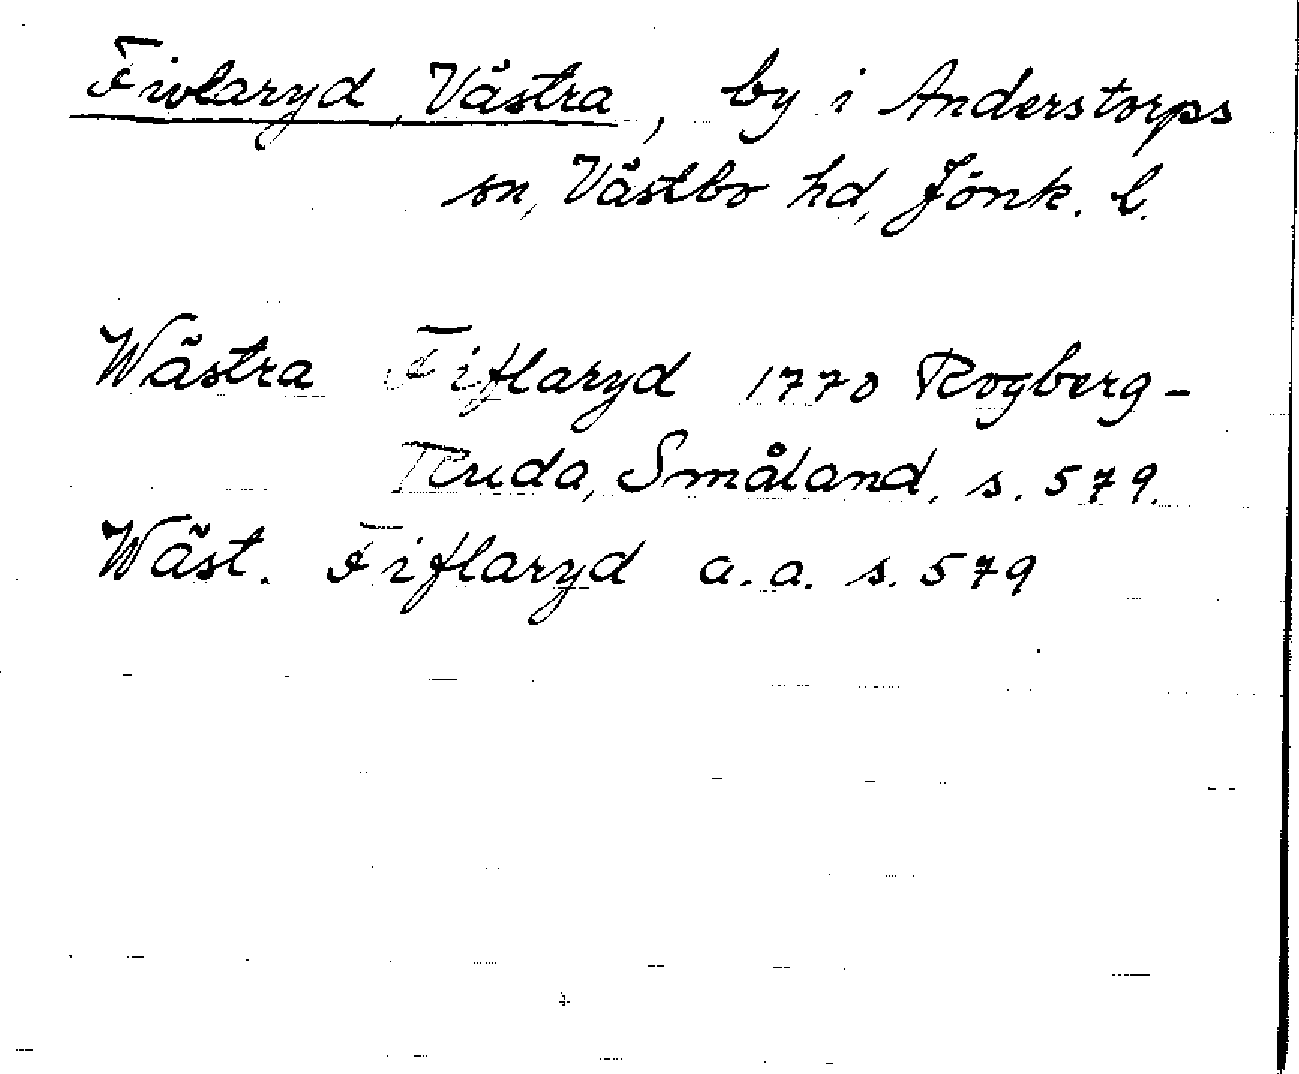 Fivlaryd, Västra, by i Anderstorps
sn, Västbo hd, Jönk. l.
Wästra Fiflaryd 1770 Rogberg-
Ruda, Småland, s. 579.
Wäst. Fiflaryd a.a. s. 579